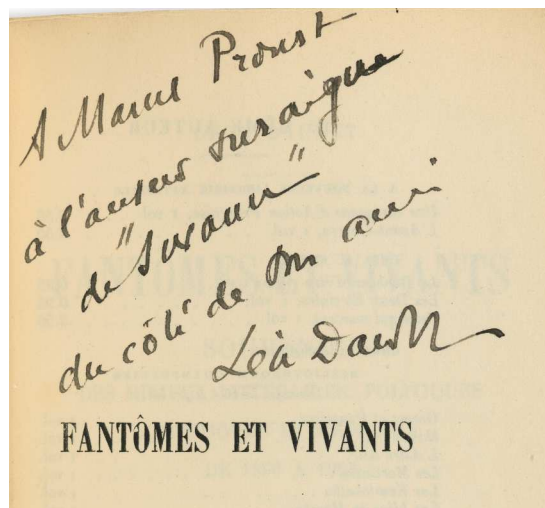 A Marcel Proust
à l'auteur suraigu
de "Swann"
du côté de son ami
Léon Daudet
FANTÔMES ET VIVANTS